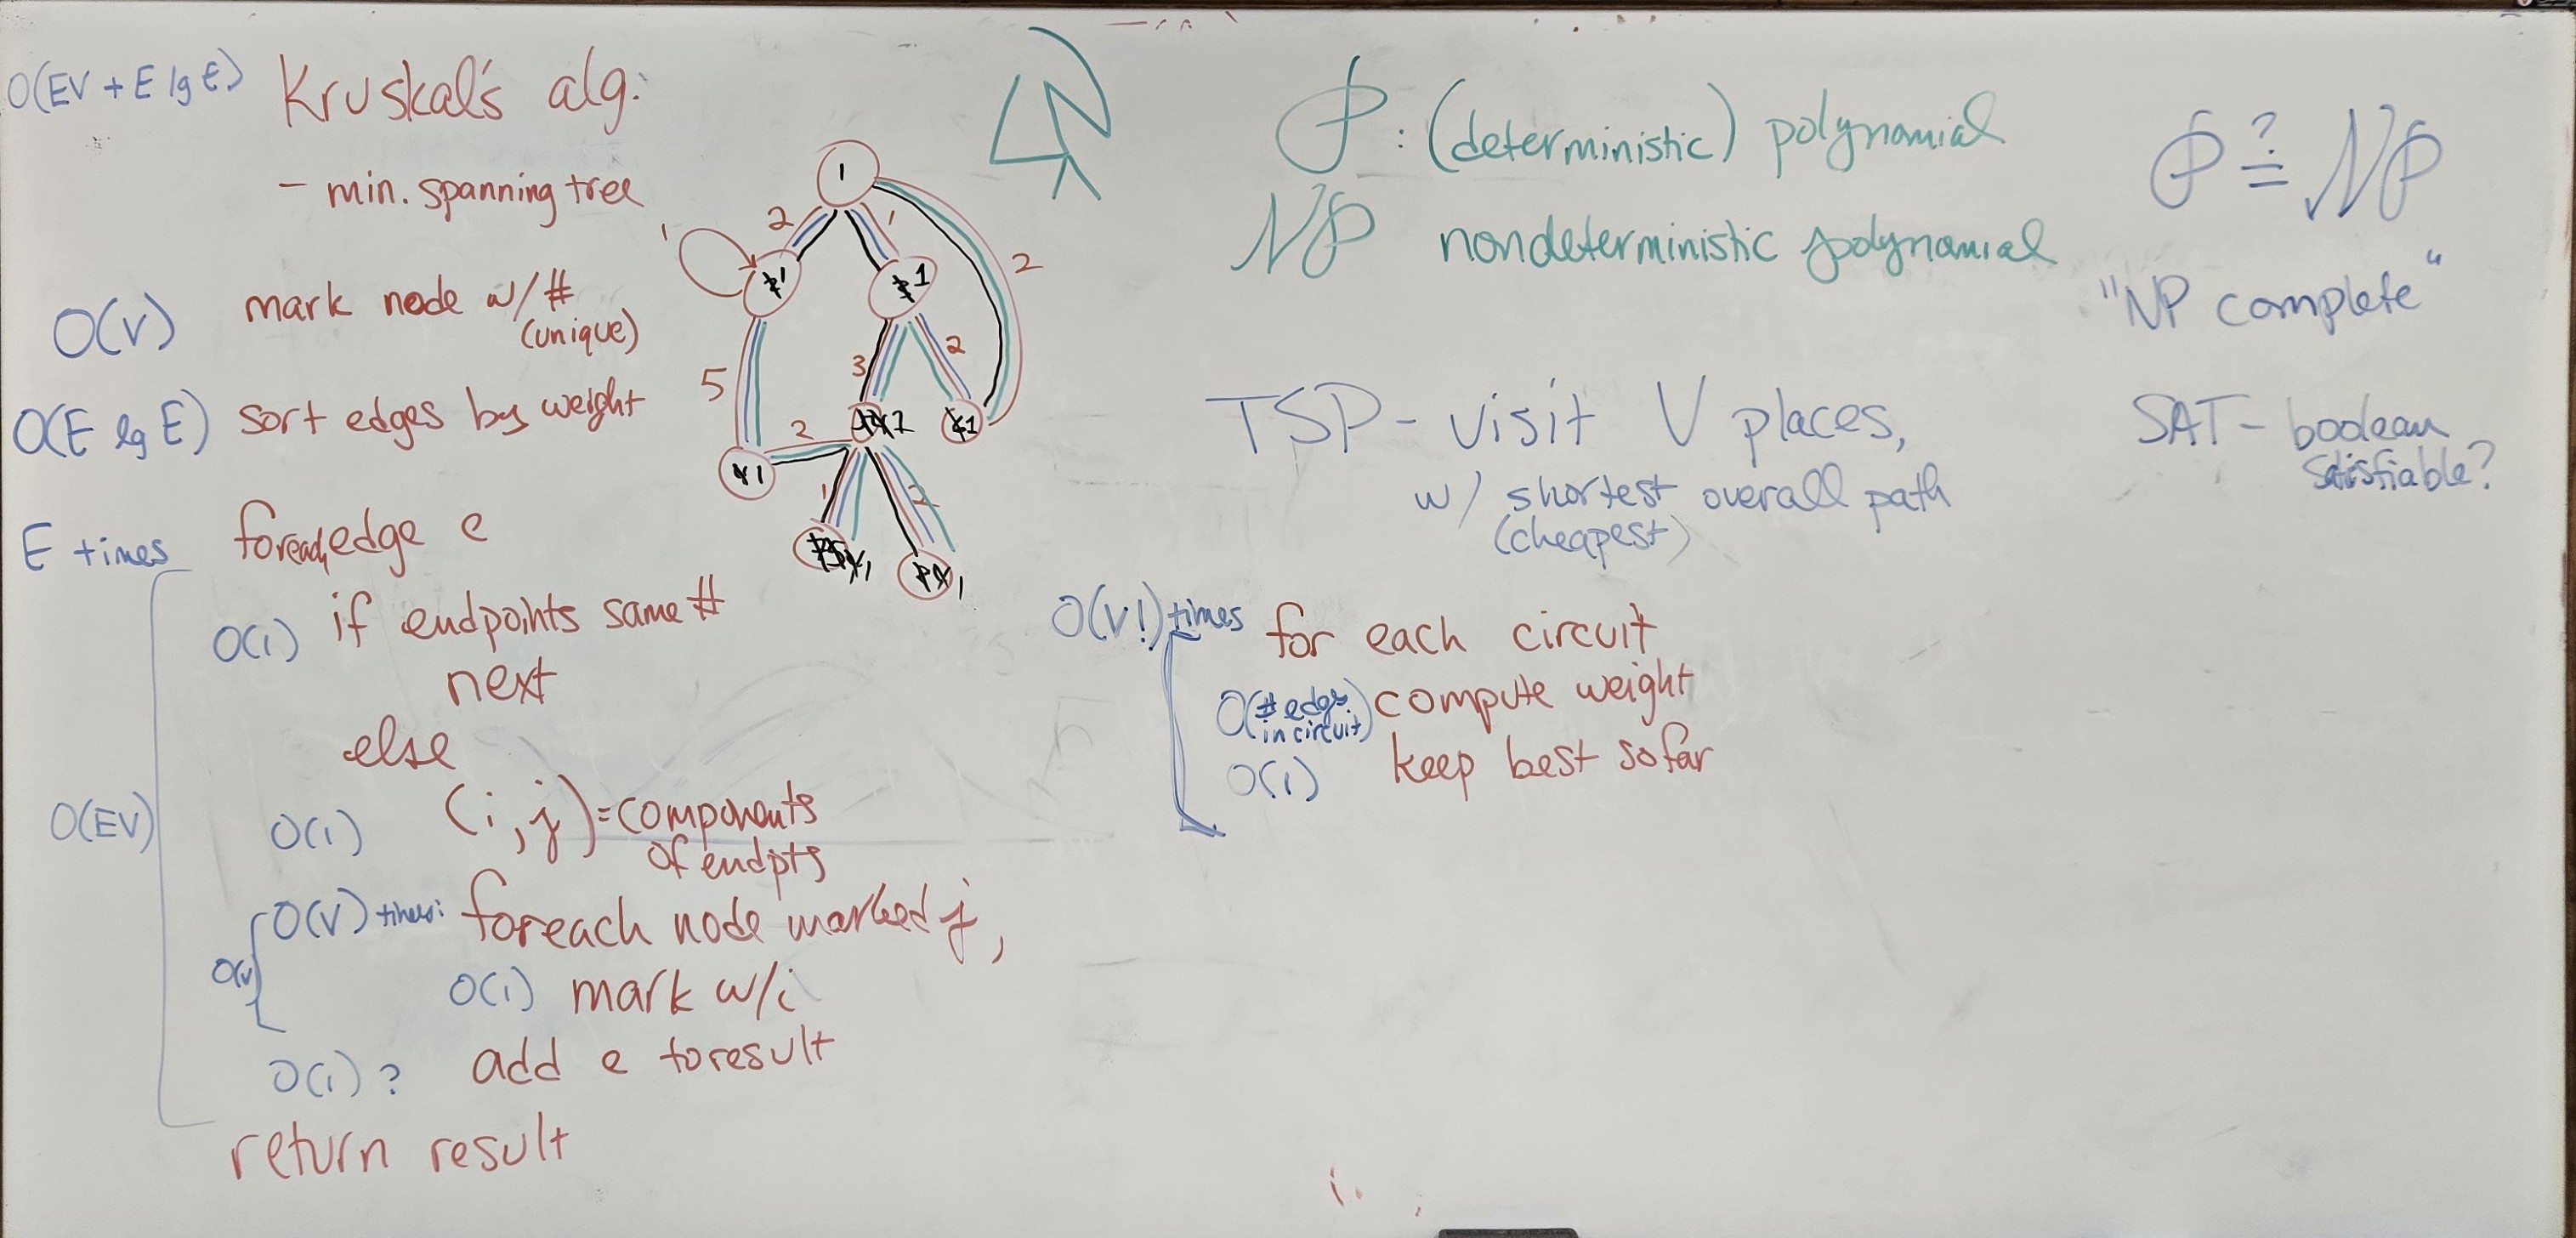 O(EV + E lg E)
Kruskal's alg:
- min. spanning tree
O(V) mark node w/ #
(unique)
O(E lg E) sort edges by weight
E times foreach edge e
O(1) if endpoints same #
next
else
O(EV)
O(1) (i, j) = components
of endpts
O(V) times: foreach node marked j,
O(V)
O(1) mark w/ i
O(1)? add e to result
return result
1
2
1
1
2
1
1
3
2
5
2
1
1
1
2
1
1
P : (deterministic) polynomial
NP nondeterministic polynomial
P ?= NP
"NP complete"
TSP - visit V places,
w/ shortest overall path
(cheapest)
SAT - boolean
satisfiable?
O(V!) times for each circuit
O(# edges compute weight
in circuit)
O(1) keep best so far